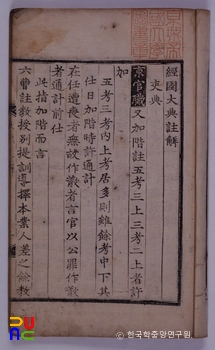 經國大典註解
吏典
京官職又加階註五考三上三考二上者許
加
五考三考內上考居多則雖餘考中下其
仕日加階時許通計
在任遭喪者無故作散者言官以公罪作散
者通計前仕
此指加階而言
六曹註教授別提訓導擇本業人差之餘教
PUAC
한국학중앙연구원